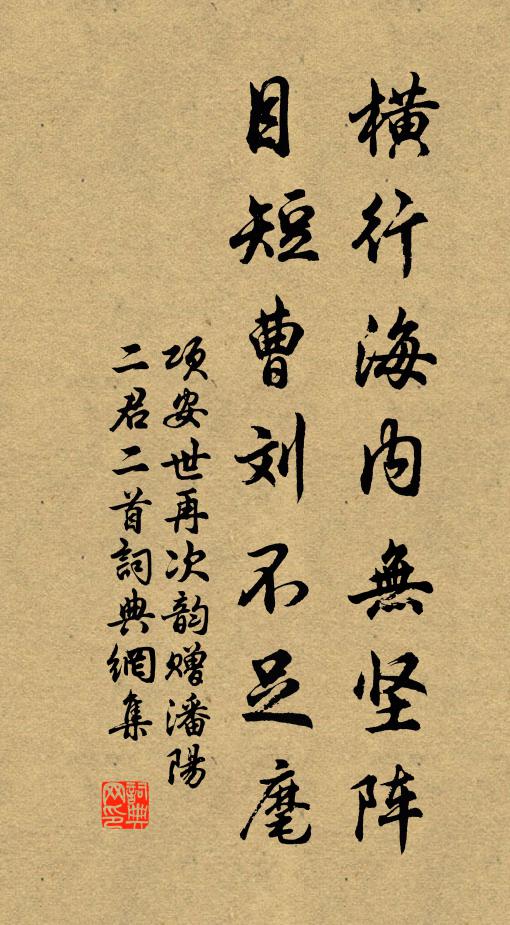 横行海内無坚阵
目短曹刘不足麾
项安世再次韵赠潘陽
二君二首詞典網集
詞典
网印